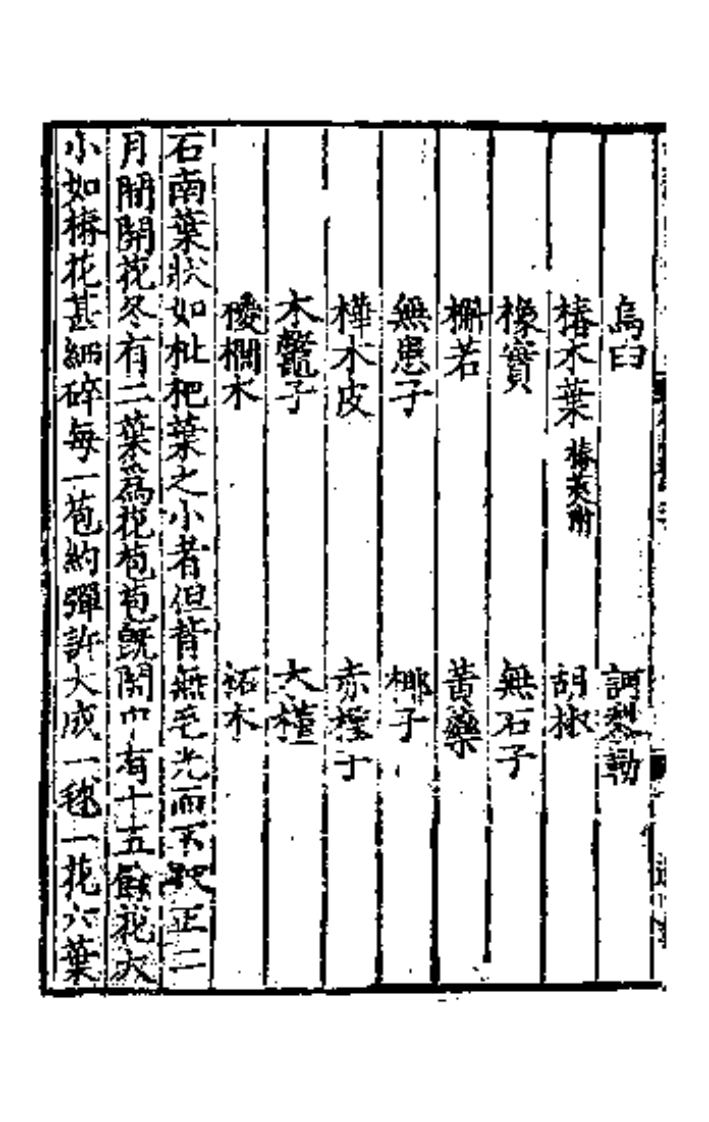 烏臼 訶黎勒
椿木葉 椿莢附 胡椒
橡實 無石子
槲若 黃藥
無患子 椰子
樺木皮 赤檉子
木鼈子 木槿
椶櫚木 柘木
石南葉狀如枇杷葉之小者但背無毛光而不皺正二
月間開花冬有二葉爲花苞苞既開中有十五餘花大
小如椿花甚細碎每一苞約彈許大成一毬一花六葉